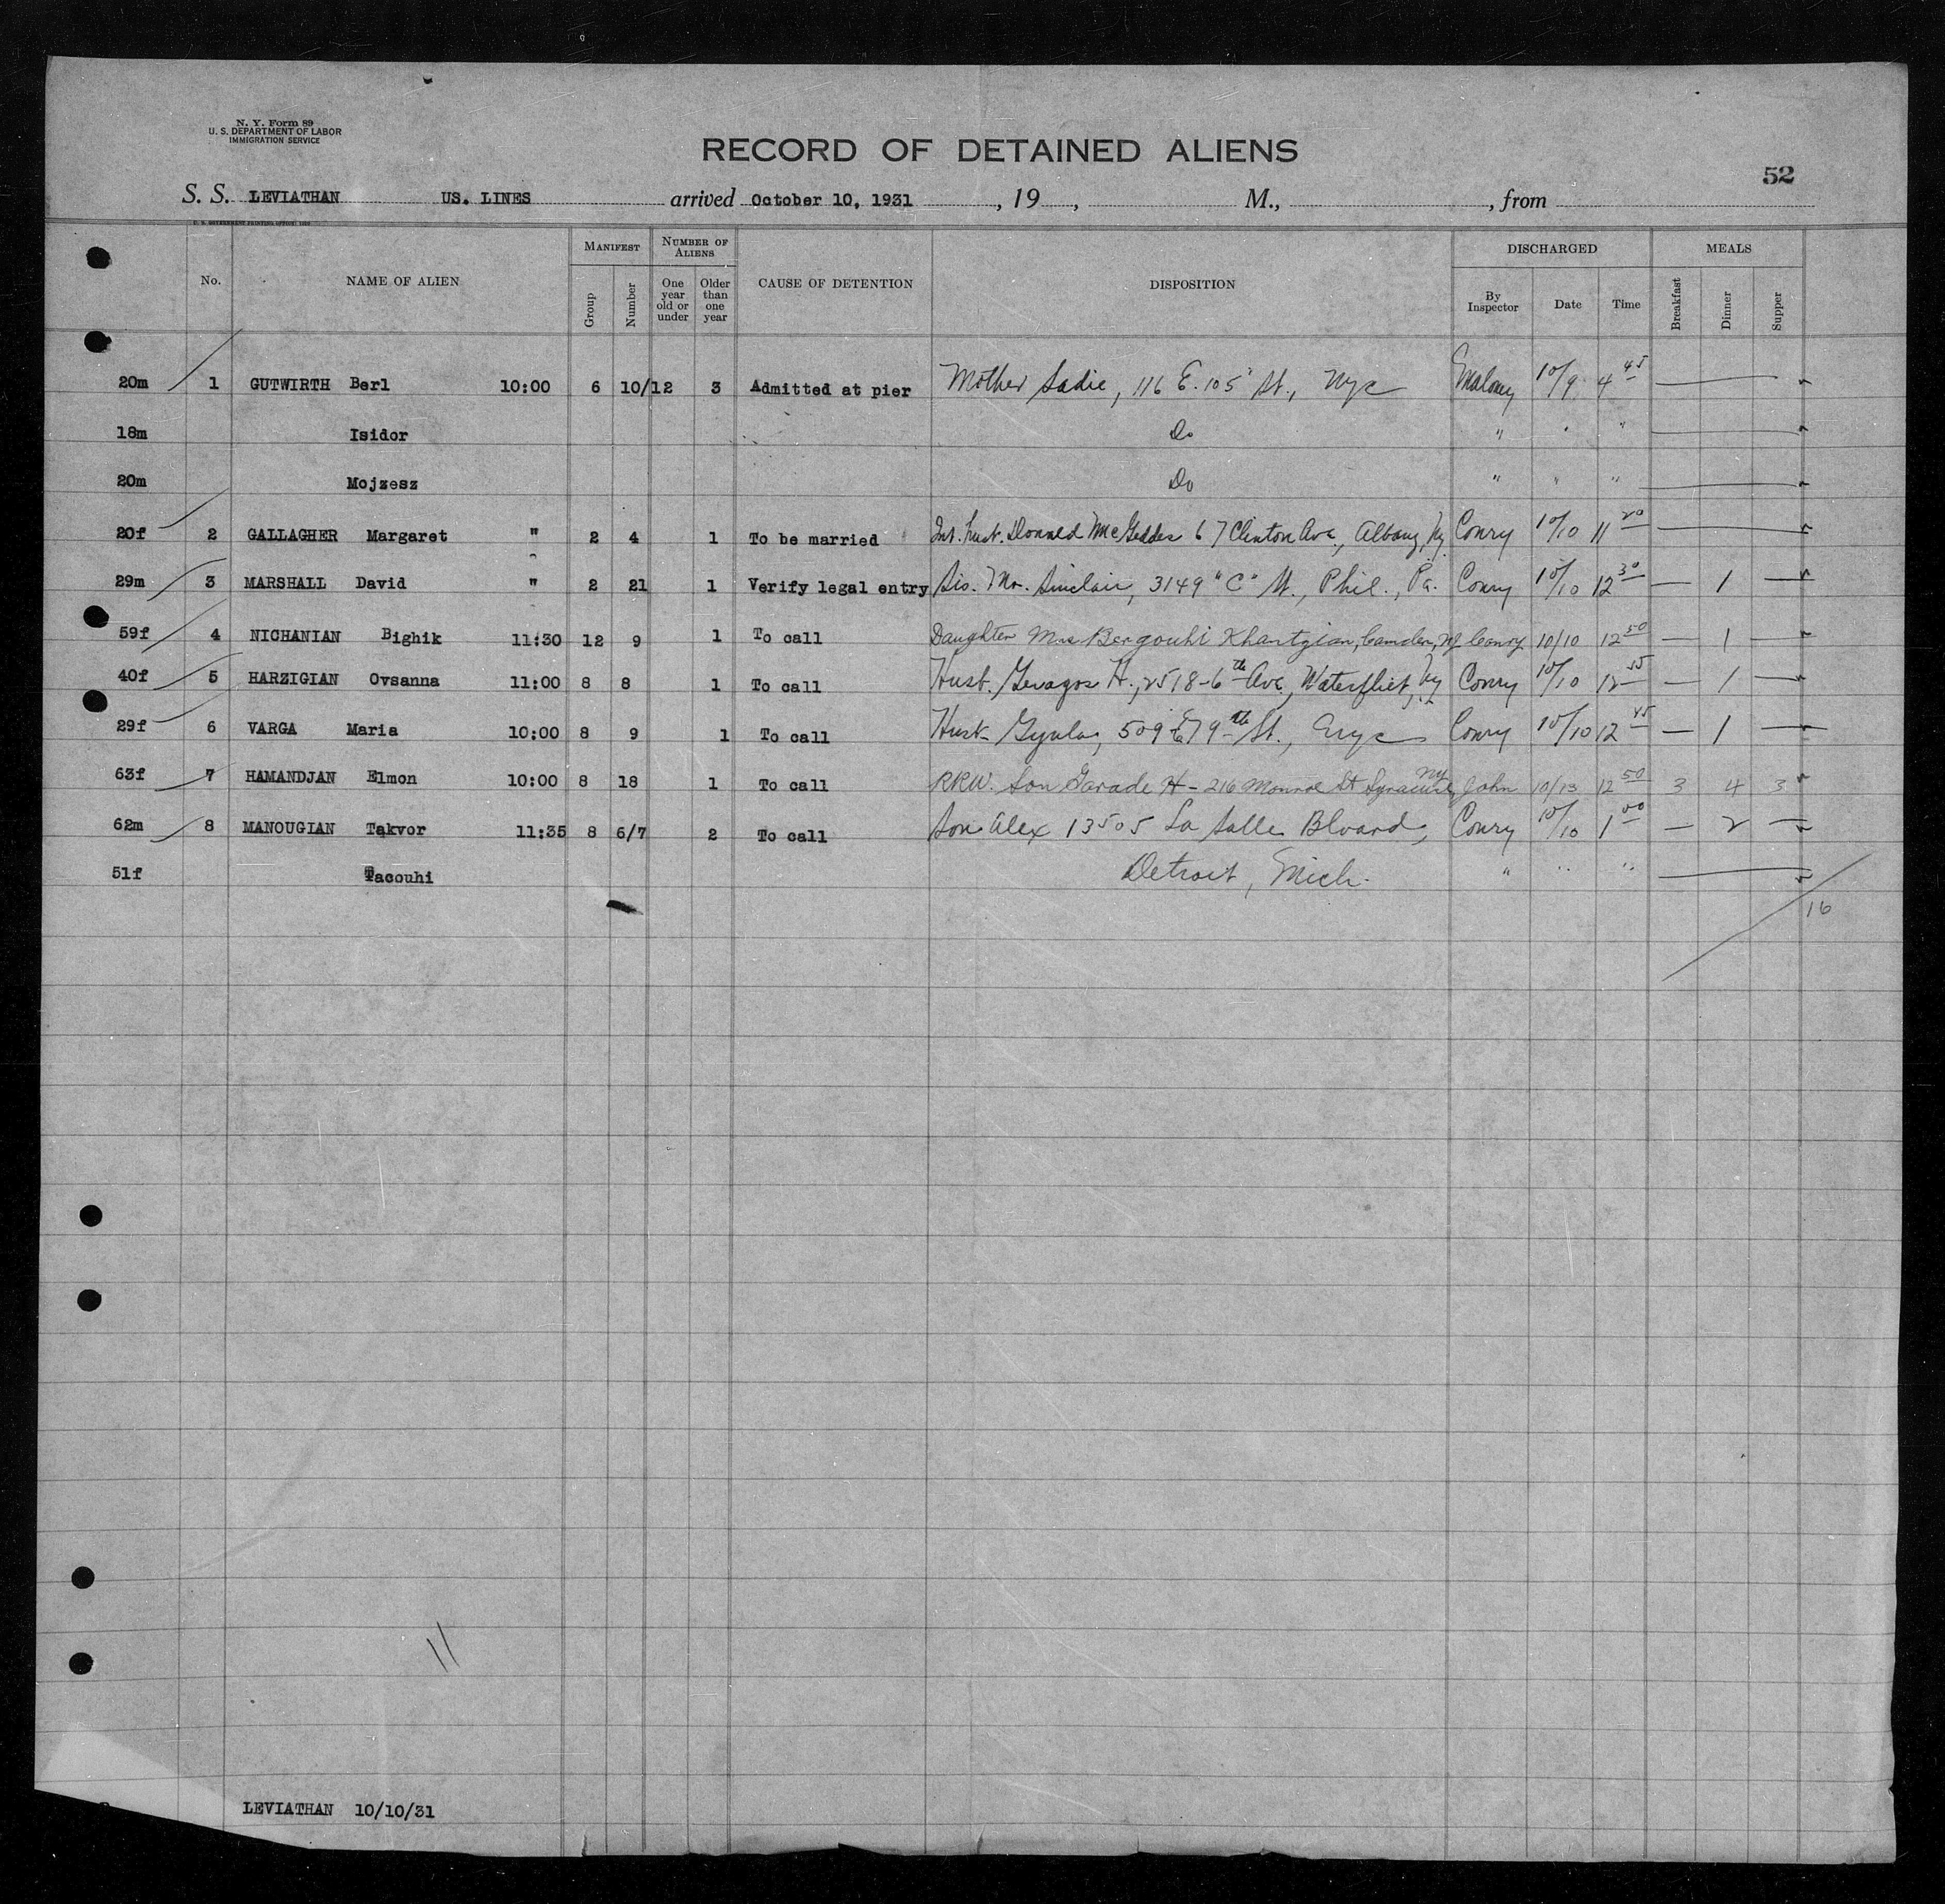 N. Y. Form 89
U. S. DEPARTMENT OF LABOR
IMMIGRATION SERVICE
RECORD OF DETAINED ALIENS
52
S. S. LEVIATHAN US. LINES arrived October 10, 1931 , 19 , M., , from
MANIFEST NUMBER OF ALIENS DISCHARGED MEALS
No. NAME OF ALIEN Group Number One year old or under Older than one year CAUSE OF DETENTION DISPOSITION By Inspector Date Time Breakfast Dinner Supper
20m 1 GUTWIRTH Berl 10:00 6 10/12 3 Admitted at pier Mother Sadie, 116 E. 105" St., Nyc Maloney 10/9 4 45
18m Isidor Do " " "
20m Mojzesz Do " " "
20f 2 GALLAGHER Margaret " 2 4 1 To be married Int. Husb. Donned McGeddes 67 Clinton Ave., Albany, Ny Conry 10/10 11 20
29m 3 MARSHALL David " 2 21 1 Verify legal entry Sis. Mr. Sinclair, 3149 "C" St., Phil., Pa. Conry 10/10 12 30 — 1 —
59f 4 NICHANIAN Bighik 11:30 12 9 1 To call Daughter Mrs Bergouhi Khartzian, Camden, NJ Conry 10/10 12 50 — 1 —
40f 5 HARZIGIAN Ovsanna 11:00 8 8 1 To call Husb. Gevagos H., 2518-6th Ave., Waterfliet, Ny Conry 10/10 12 55 — 1 —
29f 6 VARGA Maria 10:00 8 9 1 To call Husb Gyula, 509 E 79th St., Nyc Conry 10/10 12 45 — 1 —
63f 7 HAMANDJAN Elmon 10:00 8 18 1 To call RRW. Son Garade H - 216 Monroe St Syracuse, NY John 10/13 12 50 3 4 3
62m 8 MANOUGIAN Takvor 11:35 8 6/7 2 To call Son Alex 13505 La Salle Blvard, Conry 10/10 1 00 — 2 —
51f Tacouhi Detroit, Mich. " " "
16
11
LEVIATHAN 10/10/31